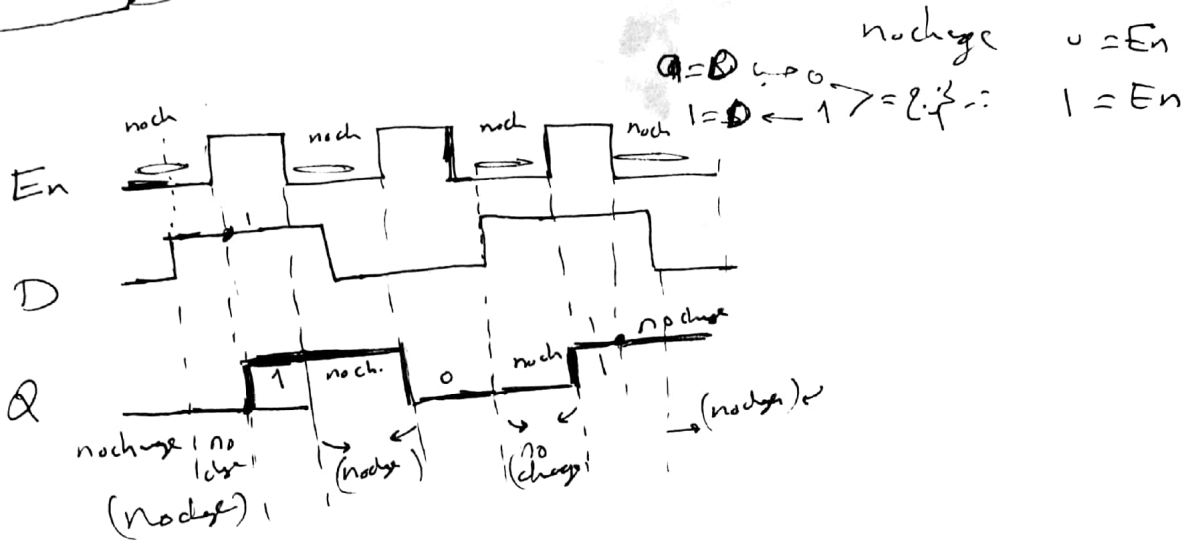 nochage 0 = En
Q = D ↔ 0
1 = D ← 1 > = {.j} ∴ 1 = En
noch noch noch noch
En
1
D
nochage
1 noch. 0 noch 1
Q
nochange no
chge (nochge) no
(change) (nochge)
(nochge)